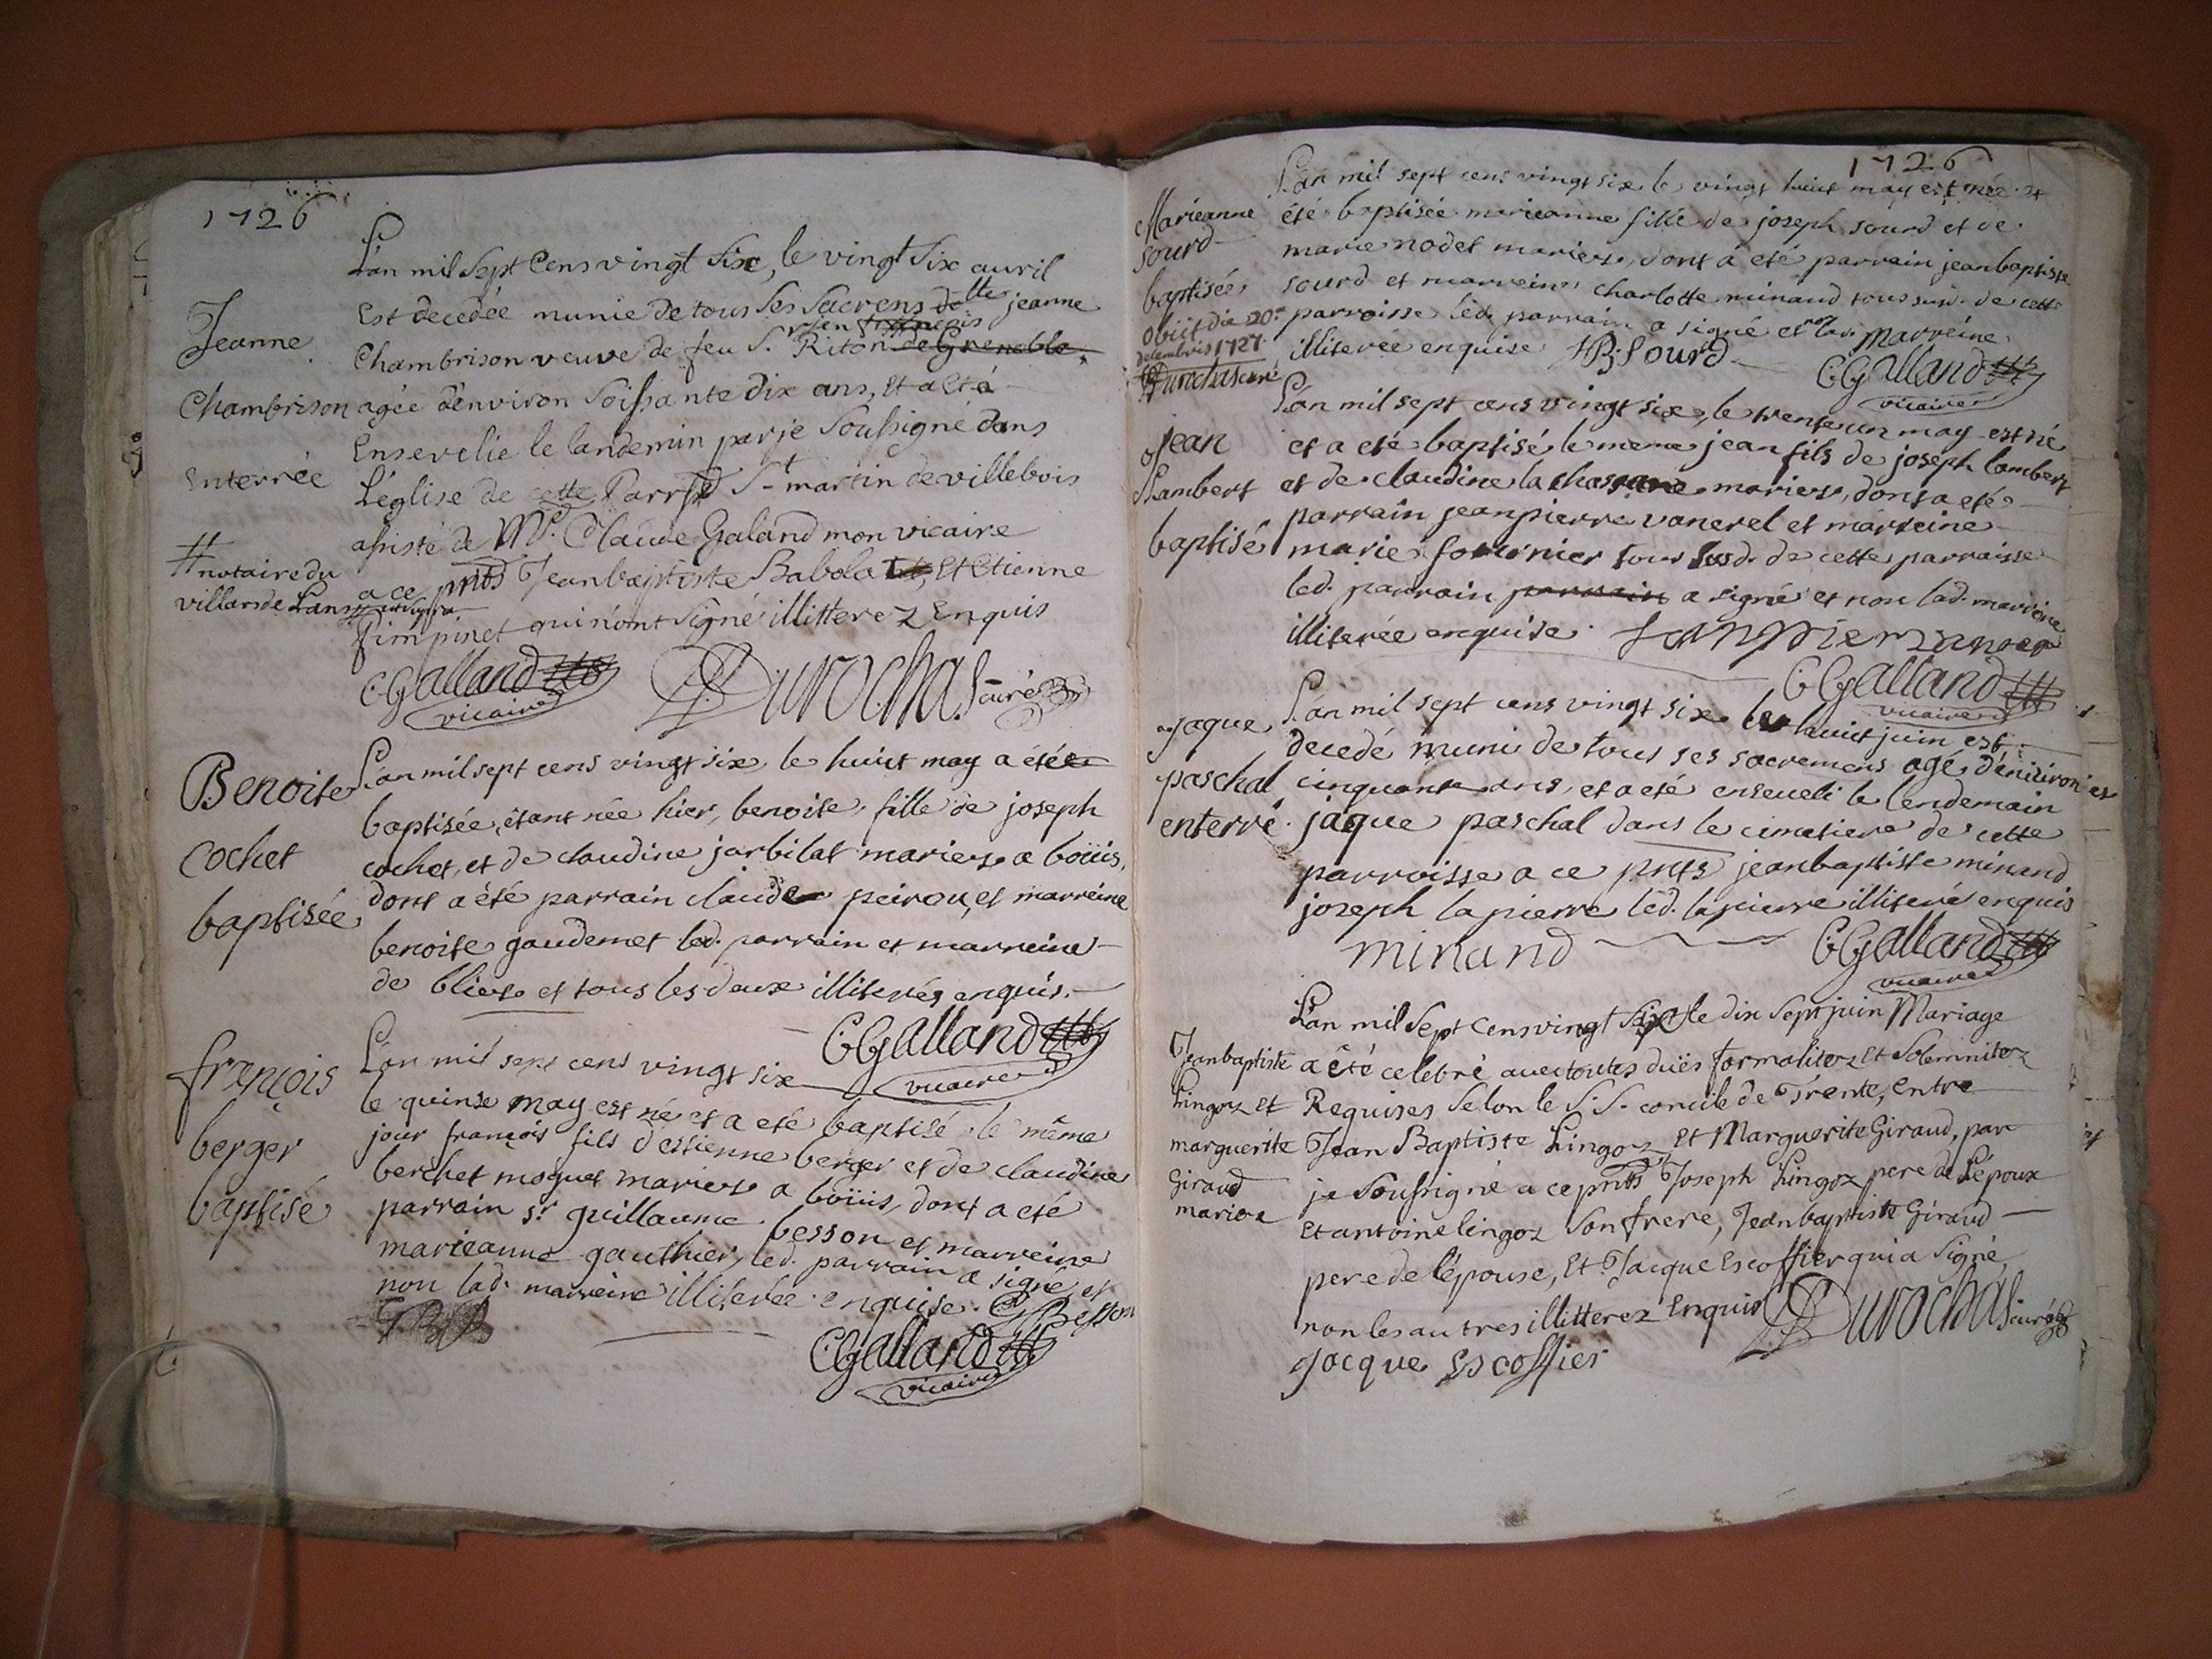 1726
Jeanne
Chambrison
Enterrée
# notaire du
villars de Lans
L'an mil Sept Cens vingt Six, le vingt Six auril
Est decedée munie de tous Ses Sacrens delle jeanne
Chambrison veuve de feu S. Riton de Grenoble,
agée d'environ Soissante dix ans, Et a eté
Ensevelie le landemin par je Soussigné dans
L'église de cette Parrsse St martin de villebois
assisté de Mr. Claude Galand mon vicaire
a ce pnts Jeanbaptiste Babolat, Et Etienne
Pimpinet qui n'ont Signé illitterez Enquis
CGalland vicaire Durochas curé
Benoite
cochet
baptisée
L'an mil sept cens vingt six le huict may a été
baptisée, étant née hier, benoite fille de joseph
cochet, et de claudine jarbilat mariers a boüis,
dont a été parrain claude peirou, et marreine
benoite gaudemet led. parrain et marreine
de bliers et tous les deux illiterés enquis.
CGalland vicaire
françois
berger
baptisé
L'an mil sept cens vingt six
le quinse may est né et a eté baptisé le même
jour françois fils d'estienne berger et de claudine
berchet moquet mariers a boüis, dont a eté
parrain sr guillaume besson et marreine
marieanne gauthier, led. parrain a signé et
non lad. marreine illiterée enquise. G Besson
CGalland vicaire
1726
Marieanne
sourd
baptisée
obiit die 20a
decembris 1727.
Durochas curé
L'an mil sept cens vingt six le vingt huict may est née et
été baptisée marieanne fille de joseph sourd et de
marie nodet mariers, dont a été parrain jeanbaptiste
sourd et marreine charlotte minaud tous susd. de cette
parroisse led. parrain a signé et non lad. marreine
illiterée enquise JB Sourd
CGalland vicaire
jean
Lambert
baptisé
L'an mil sept cens vingt six, le trente un may est né
et a eté baptisé le meme jean fils de joseph lambert
et de claudine la mariers, dont a eté
parrain jeanpierre vanerel et marreine
marie fournier tous susd. de cette parraisse
led. parrain parrain a signé et non lad. marreine
illiterée enquise.
CGalland vicaire
jaque
paschal
enterré
L'an mil sept cens vingt six le huict juin est
decedé muni de tous ses sacremens agé d'éniiron
cinquante ans, et a eté enseueli le lendemain
jaque paschal dans le cimetiere de cette
parroisse a ce pnts jeanbaptiste minand
joseph lapierre led. lapierre illiteré enquis
minand CGalland vicaire
Jeanbaptiste
Lingoz Et
marguerite
Giraud
mariez
L'an mil Sept Cens vingt Six le dix Sept juin Mariage
a été celebré avec toutes duës formalitez Et Solemnitez
Requises Selon le S. S. concile de Trente, Entre
Jean Baptiste Lingoz, Et Marguerite Giraud, par
je Soussigné a ce pnts Joseph Lingoz pere de L'époux
Et antoine lingoz Son frere, Jeanbaptiste Giraud
pere de l'épouse, Et Jacque Escoffier qui a Signé
non les autres illitterez Enquis Durochas curé
Jacque Escoffier